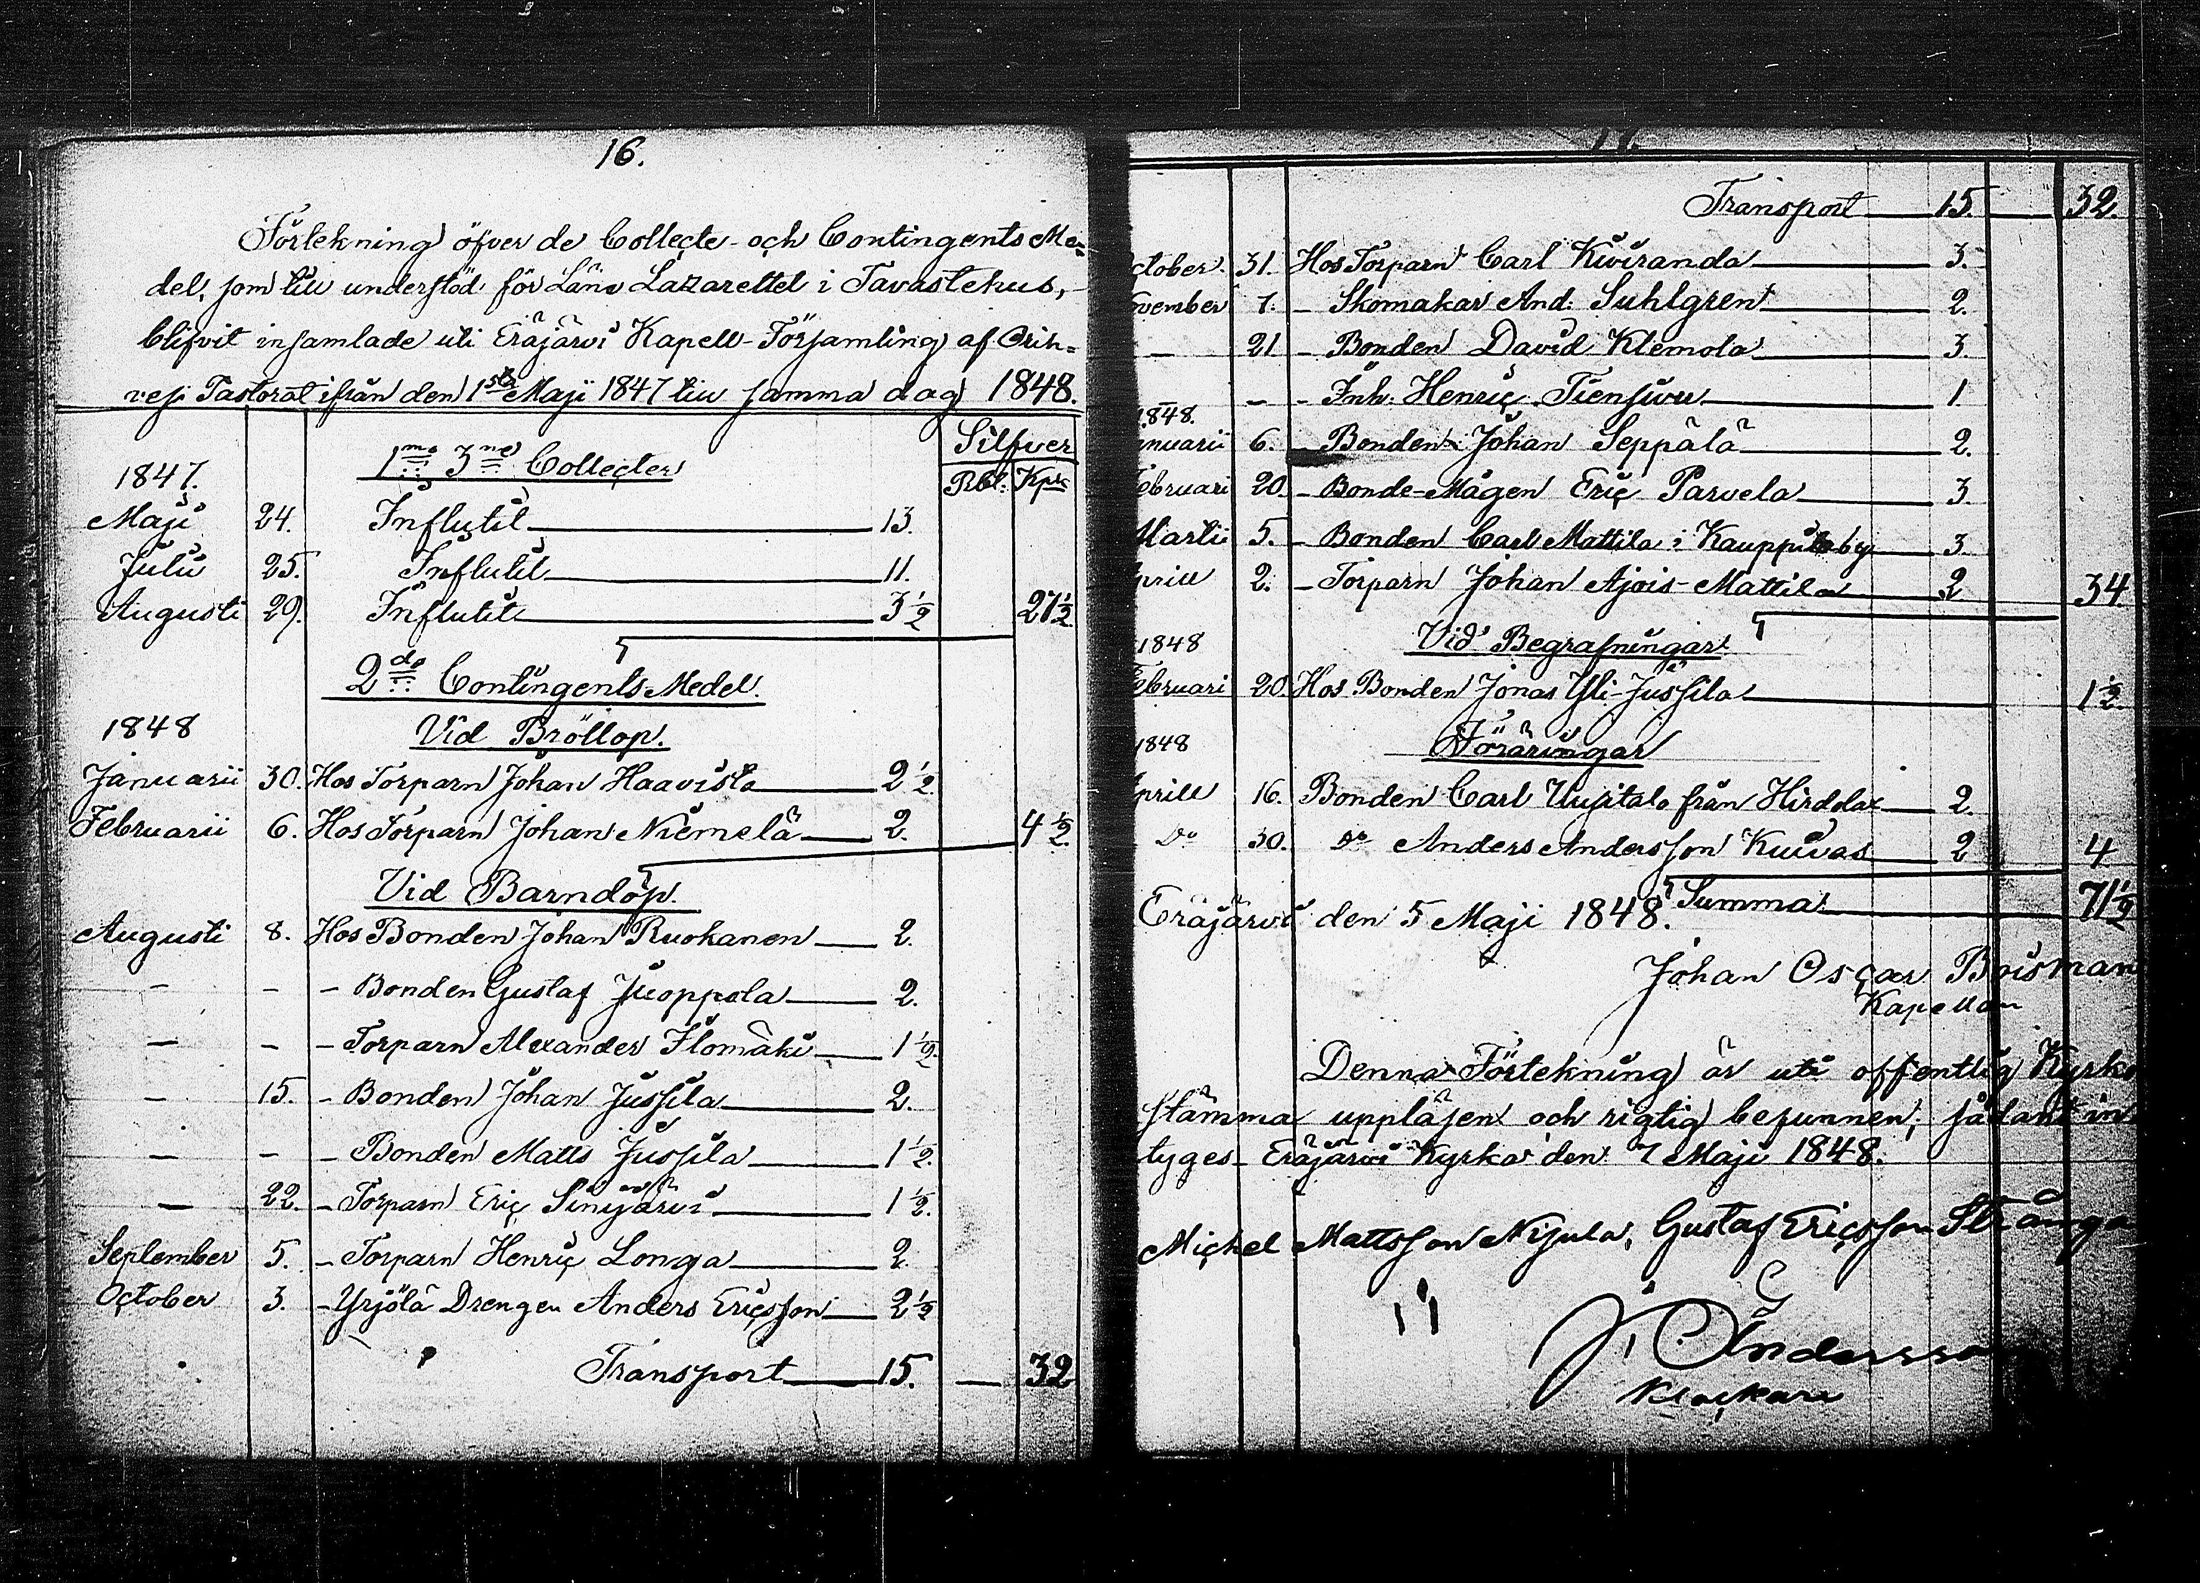 16.
Förtekning öfver de Collecte- och Contingents Me=
del, som till understöd för Läns Lazarettet i Tavastehus,
blifvit insamlade uti Eräjärvi Kapell-Församling af Orih=
vesi Pastorat ifrån den 1sta Maji 1847 till samma dag 1848.
1mo 3ne Collecter
Silfver
Rbl: Kpk
1847.
Maji 24. Influtit 13.
Julii 25. Influtit 11.
Augusti 29. Influtit 3½ 27½
2do Contingents Medel.
1848 Vid Bröllop.
Januarii 30. Hos Torparn Johan Haavisto 2½
Februarii 6. Hos Torparn Johan Niemelä 2. 4½
Vid Barndop.
Augusti 8. Hos Bonden Johan Ruokanen 2.
- - - Bonden Gustaf Juoppola 2.
- - - Torparn Alexander Ilomäki 1½
- 15. - Bonden Johan Jussila 2.
- - - Bonden Matts Jussila 1½.
- 22. - Torparn Eric Sinijärvi 1½.
September 5. - Torparn Henric Longa 2.
October 3. - Yrjölä Drengen Anders Ericsson 2½
Transport 15. - 32
Transport 15. 32.
ctober 31. Hos Torparn Carl Kiviranda 3.
ovember 7. - Skomakar And: Suhlgren 2.
- 21 - Bonden David Klemola 3.
- - Inh. Henric Tiensuu 1.
1848.
anuarii 6. - Bonden Johan Seppälä 2.
Februari 20. - Bonde-Mågen Eric Parvela 3
Martii 5. - Bonden Carl Mattila i Kauppila by 3.
Aprill 2. - Torparn Johan Ajois-Mattila 2 34.
1848 Vid Begrafningar.
Februari 20. Hos Bonden Jonas Yli-Jussila 1½.
1848 Föräringar
Aprill 16. Bonden Carl Uusitalo från Hirdola 2.
Do 30. Do Anders Andersson Kuivas 2 4
Summa 71½
Eräjärvi den 5 Maji 1848.
Johan Oscar Boisman
Kapellan
Denna Förtekning är uti offentlig Kyrko
stämma uppläsen och rigtig befunnen, sådant in
tyges Eräjärvi Kyrka den 7 Maji 1848.
Michel Mattsson Nijula, Gustaf Ericsson
J Andersson
Klockare